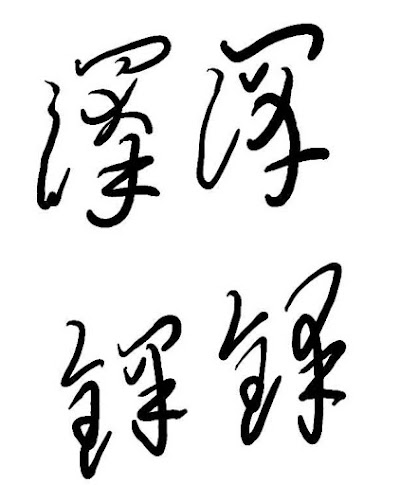 澤 澤
鐸 鐸